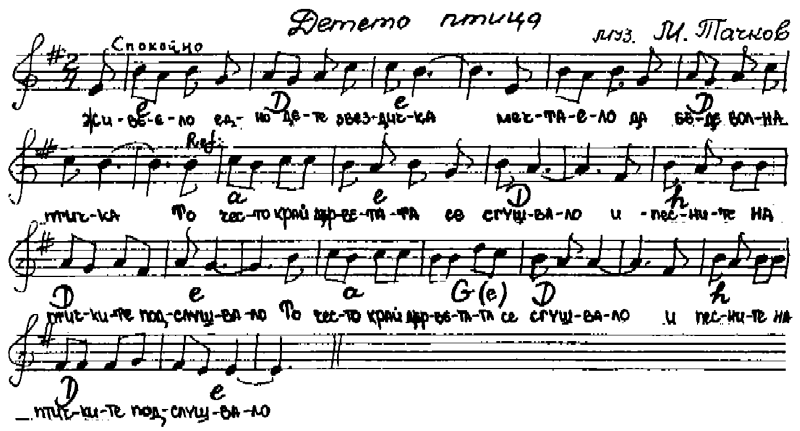 Детето птица
муз. М. Тачков
Спокойно
2 4
e D e D
Жи-ве-е-ло ед-но де-те звез-дич-ка меч-та-е-ло да бъ-де вол-на
Ref:
a e D h
птич-ка То чес-то край дър-ве-та-та се слуш-ва-ло и -пес-ни-те на
D e a G(e) D h
птич-ки-те под-слуш-ва-ло То чес-то край дър-ве-та-та се слуш-ва-ло и пес-ни-те на
D e
птич-ки-те под-слуш-ва-ло